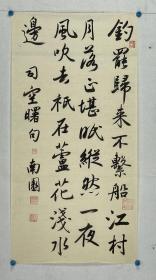 釣罷歸來不繫船江村
月落正堪眠縱然一夜
風吹去祇在蘆花淺水
邊
司空曙句 南園